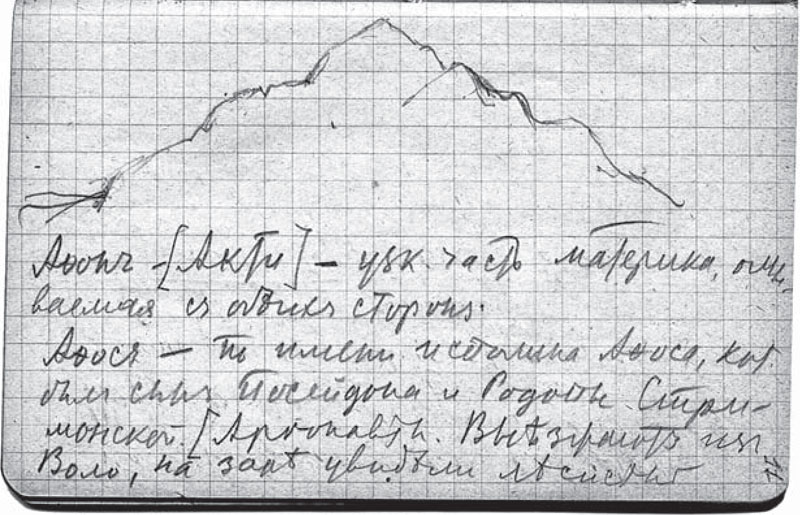 Аѳонъ – [Акти] – узк. часть материка, омы-
ваемая съ обѣихъ сторонъ.
Аѳосъ — по имени исполина Аѳоса, кот.
былъ сынъ Посейдона и Родопы Стри-
монской. [Аргонавты. Выѣзжаютъ изъ
Воло, на зарѣ увидѣли лѣсистый